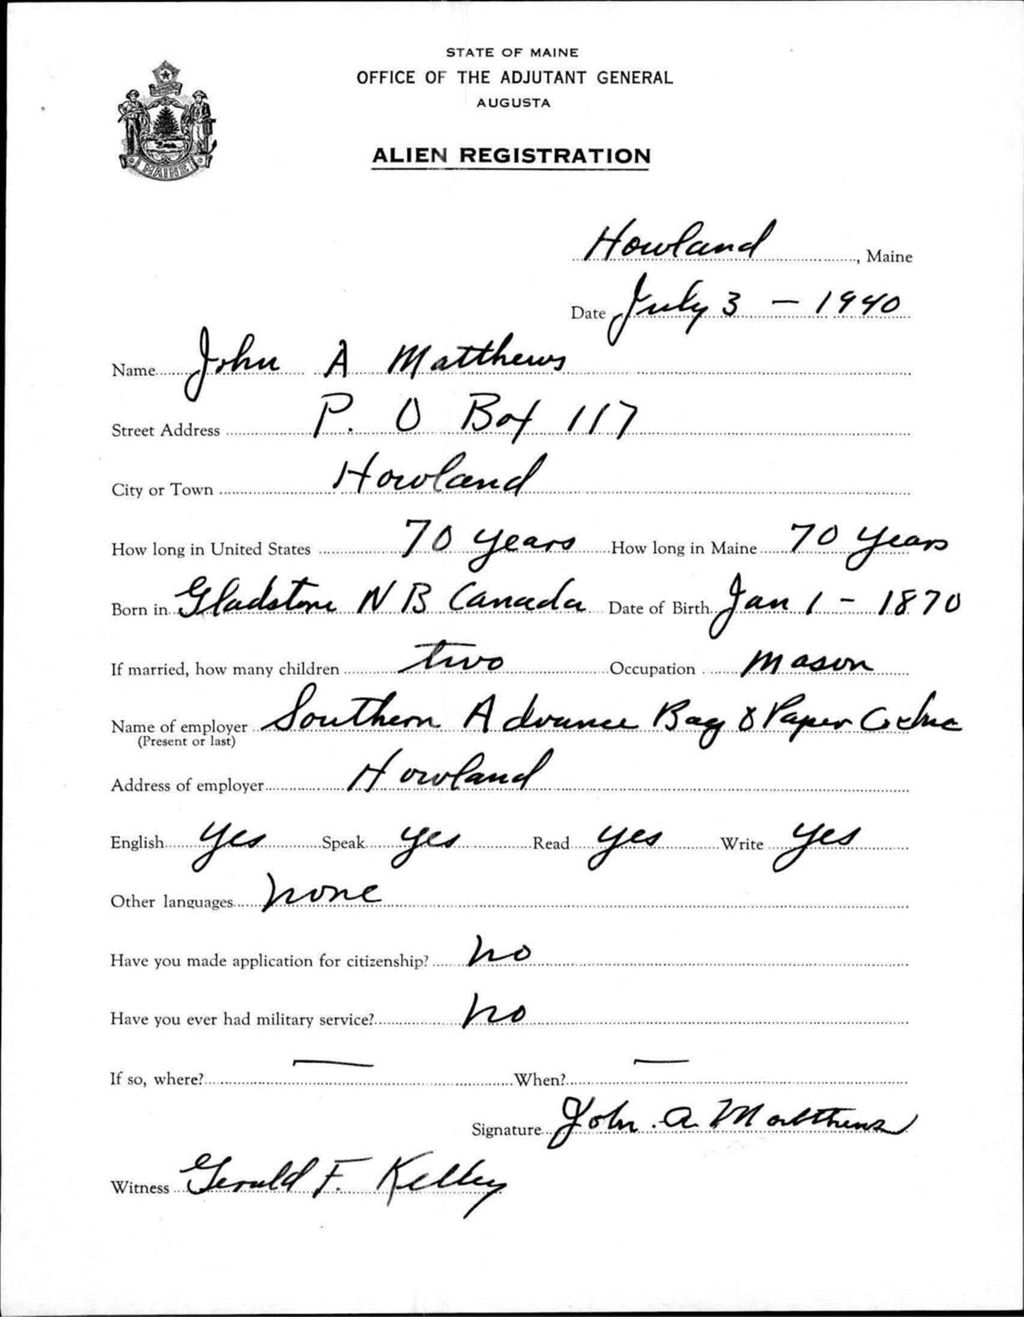 STATE OF MAINE
OFFICE OF THE ADJUTANT GENERAL
AUGUSTA
ALIEN REGISTRATION
MAINE
Howland, Maine
Date July 3 - 1940
Name John A Matthews
Street Address P. O Box 117
City or Town Howland
How long in United States 70 years How long in Maine 70 years
Born in Gladstone N B Canada Date of Birth Jan 1 - 1870
If married, how many children two Occupation Mason
Name of employer Southern Advance Bag & Paper Co Inc
(Present or last)
Address of employer Howland
English yes Speak yes Read yes Write yes
Other languages none
Have you made application for citizenship? no
Have you ever had military service? no
If so, where? — When? —
Signature John A Matthews
Witness Gerald F. Kelley